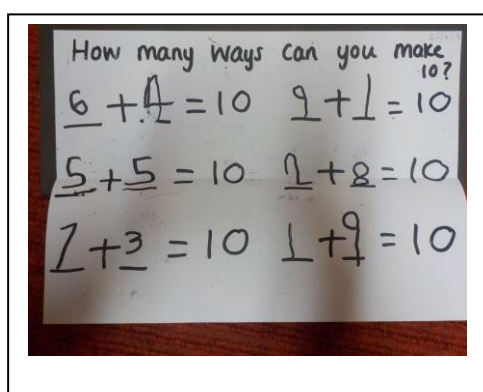 How many ways can you make
10?
6 + 4 = 10 9 + 1 = 10
5 + 5 = 10 2 + 8 = 10
7 + 3 = 10 1 + 9 = 10